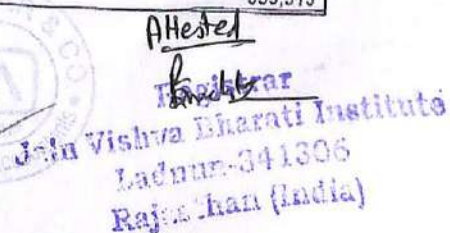 Attested
Registrar
Jain Vishva Bharati Institute
Ladnun-341306
Rajasthan (India)